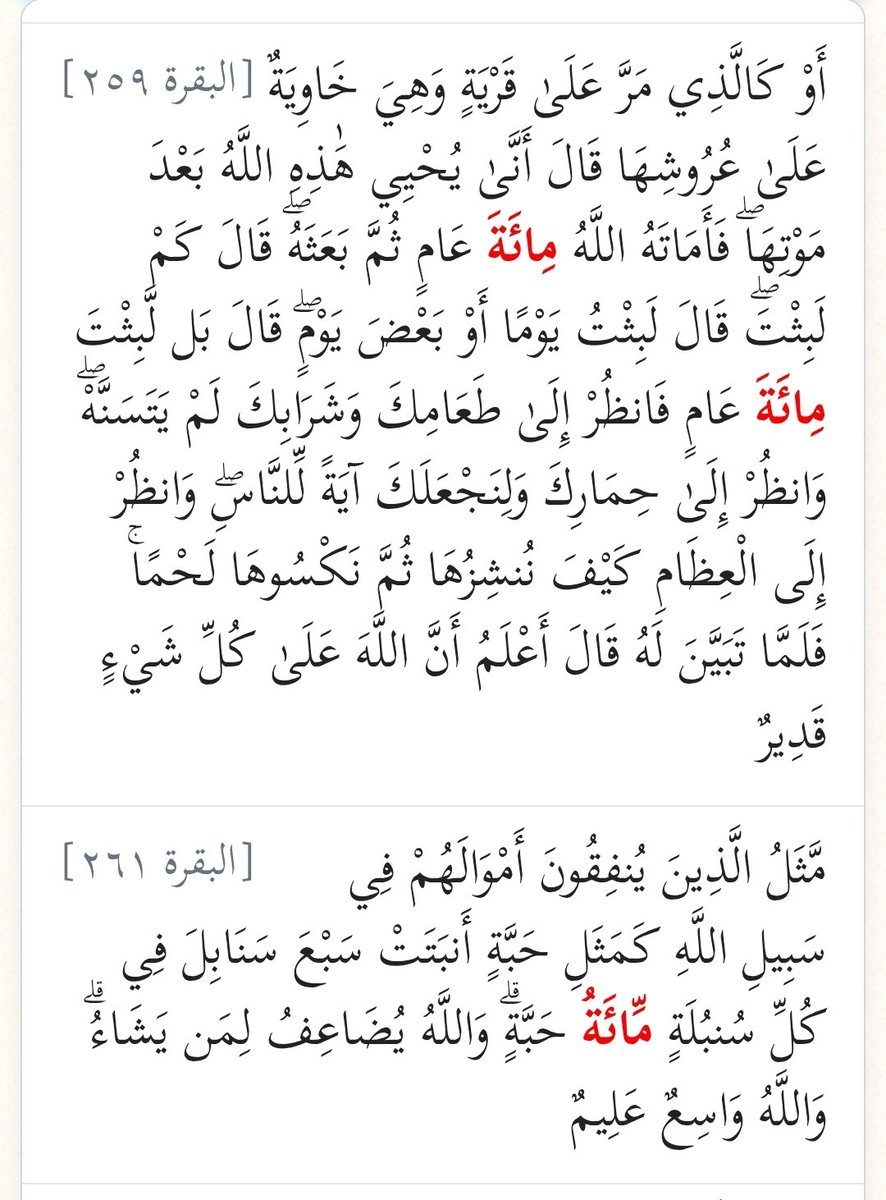 أَوْ كَالَّذِي مَرَّ عَلَىٰ قَرْيَةٍ وَهِيَ خَاوِيَةٌ [البقرة ٢٥٩]
عَلَىٰ عُرُوشِهَا قَالَ أَنَّىٰ يُحْيِي هَٰذِهِ اللَّهُ بَعْدَ
مَوْتِهَا ۖ فَأَمَاتَهُ اللَّهُ مِائَةَ عَامٍ ثُمَّ بَعَثَهُ ۖ قَالَ كَمْ
لَبِثْتَ ۖ قَالَ لَبِثْتُ يَوْمًا أَوْ بَعْضَ يَوْمٍ ۖ قَالَ بَل لَّبِثْتَ
مِائَةَ عَامٍ فَانظُرْ إِلَىٰ طَعَامِكَ وَشَرَابِكَ لَمْ يَتَسَنَّهْ ۖ
وَانظُرْ إِلَىٰ حِمَارِكَ وَلِنَجْعَلَكَ آيَةً لِّلنَّاسِ ۖ وَانظُرْ
إِلَى الْعِظَامِ كَيْفَ نُنشِزُهَا ثُمَّ نَكْسُوهَا لَحْمًا ۚ
فَلَمَّا تَبَيَّنَ لَهُ قَالَ أَعْلَمُ أَنَّ اللَّهَ عَلَىٰ كُلِّ شَيْءٍ
قَدِيرٌ
مَّثَلُ الَّذِينَ يُنفِقُونَ أَمْوَالَهُمْ فِي [البقرة ٢٦١]
سَبِيلِ اللَّهِ كَمَثَلِ حَبَّةٍ أَنبَتَتْ سَبْعَ سَنَابِلَ فِي
كُلِّ سُنبُلَةٍ مِّائَةُ حَبَّةٍ ۗ وَاللَّهُ يُضَاعِفُ لِمَن يَشَاءُ ۗ
وَاللَّهُ وَاسِعٌ عَلِيمٌ